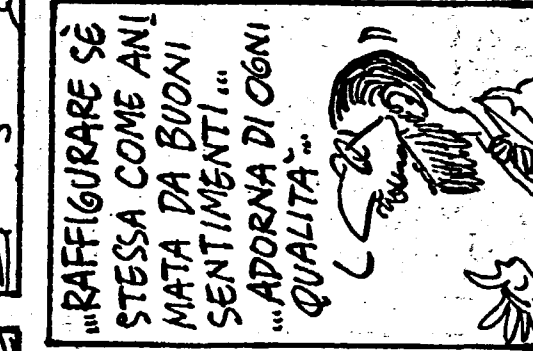 ...RAFFIGURARE SÈ
STESSA COME ANI
MATA DA BUONI
SENTIMENTI...
...ADORNA DI OGNI
QUALITÀ...